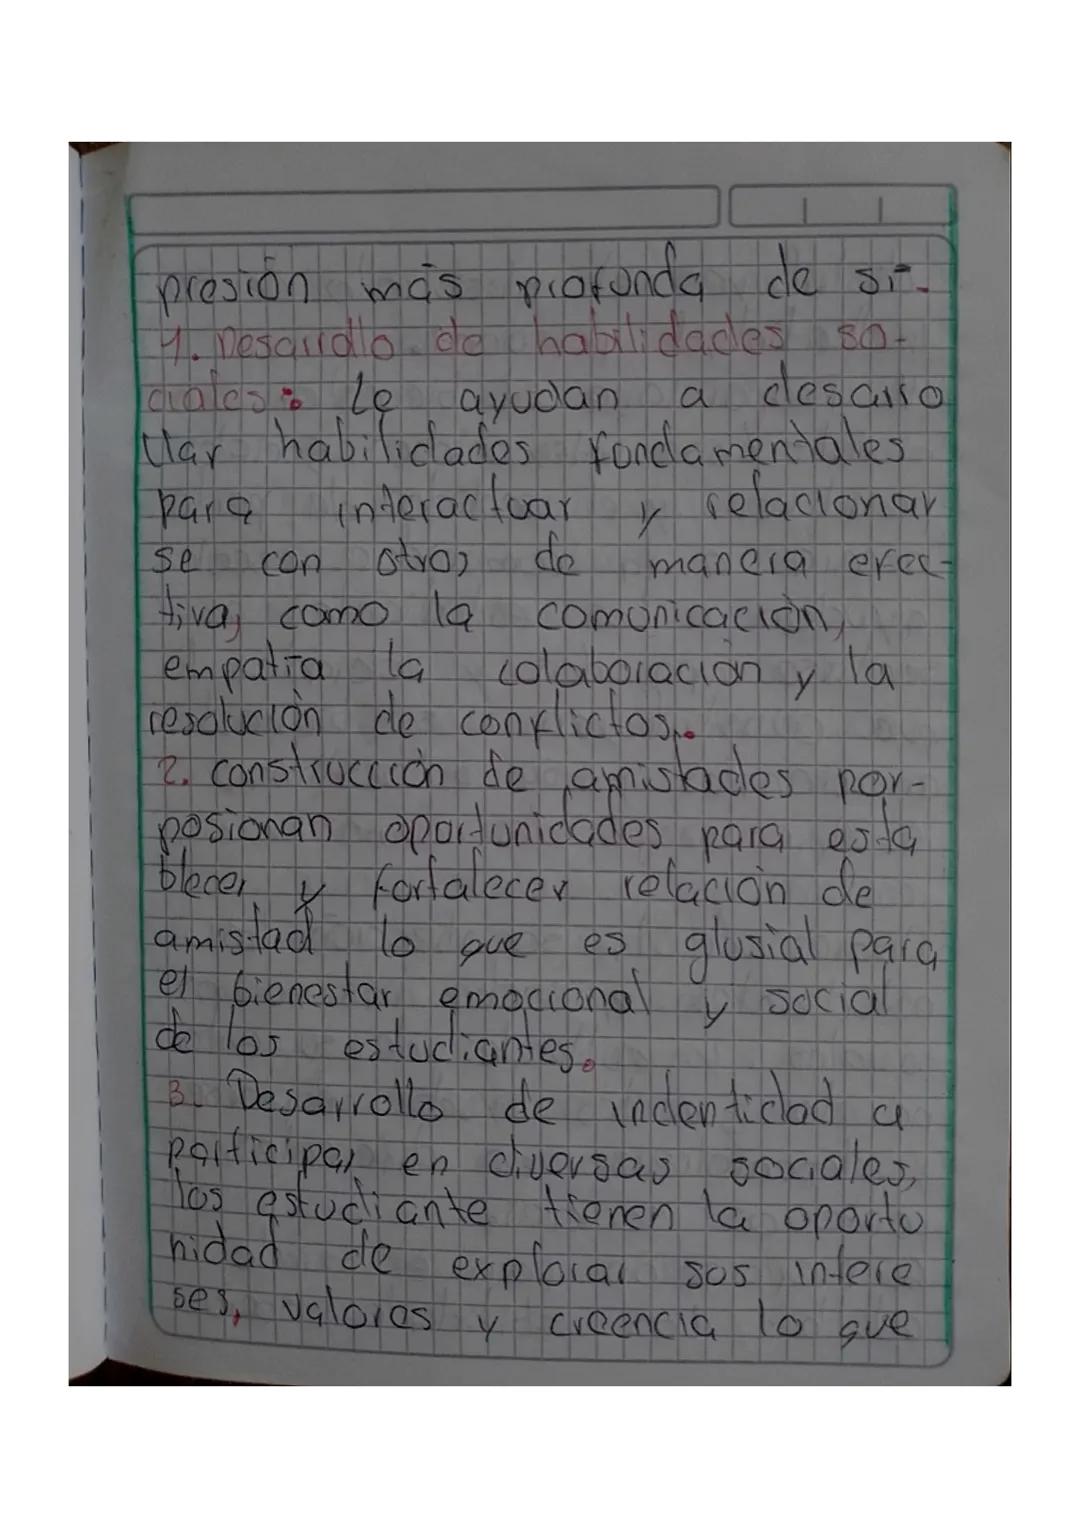 presión más profunda de sí.
1. Desarrollo de habilidades so-
ciales: Le ayudan a desarro
llar habilidades fundamentales
para interactuar y relacionar
se con otros de manera efec-
tiva, como la comunicación,
empatía la colaboración y la
resolución de conflictos.
2. construcción de amistades por-
posionan oportunidades para esta
blecer y fortalecer relación de
amistad lo que es glusial para
el bienestar emocional y social
de los estudiantes.
3. Desarrollo de indentidad a
participar en diversas sociales,
los estudiante tienen la oportu
nidad de explorar sus intere
ses, valores y creencia lo que